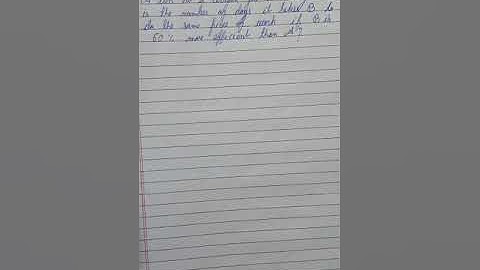 is the number of days it takes B to
do the same piece of work if B is
60% more efficient than A?